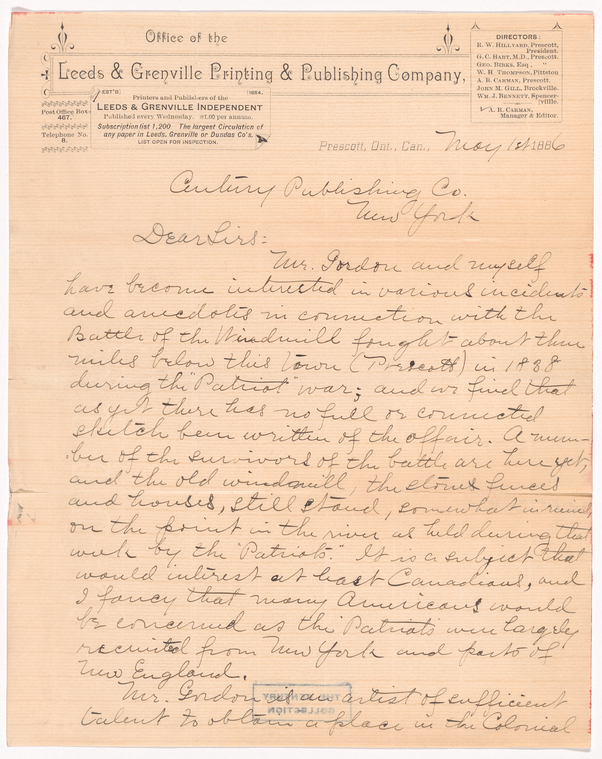 Office of the
Leeds & Grenville Printing & Publishing Company,
EST'D 1884.
Printers and Publishers of the
LEEDS & GRENVILLE INDEPENDENT
Published every Wednesday. $1.00 per annum.
Subscription list 1,200 The largest Circulation of
any paper in Leeds, Grenville or Dundas Co's.
LIST OPEN FOR INSPECTION.
Post Office Box
467.
Telephone No.
8.
DIRECTORS:
R. W. HILLYARD, Prescott,
President.
G. C. HART, M.D., Prescott.
GEO. BIRKS, Esq., "
W. H. THOMPSON, Pittston
A. R. CARMAN, Prescott.
JOHN M. GILL, Brockville.
WM. J. BENNETT, Spencer-
ville.
A. R. CARMAN,
Manager & Editor.
Prescott, Ont., Can., May 1st 1886
Century Publishing Co.
New York
Dear Sirs:
Mr. Gordon and myself
have become interested in various incidents
and anecdotes in connection with the
Battle of the Windmill fought about three
miles below this town (Prescott) in 1838
during the "Patriot" war; and we find that
as yet there has no full or connected
sketch been written of the affair. A num-
ber of the survivors of the battle are here yet,
and the old windmill, the stone fences
and houses, still stand, somewhat in ruins,
on the point in the river as held during that
week by the "Patriots." It is a subject that
would interest at least Canadians, and
I fancy that many Americans would
be concerned as the Patriots were largely
recruited from New York and parts of
New England.
Mr. Gordon is an artist of sufficient
talent to obtain a place in the Colonial
THE CENTURY
COLLECTION